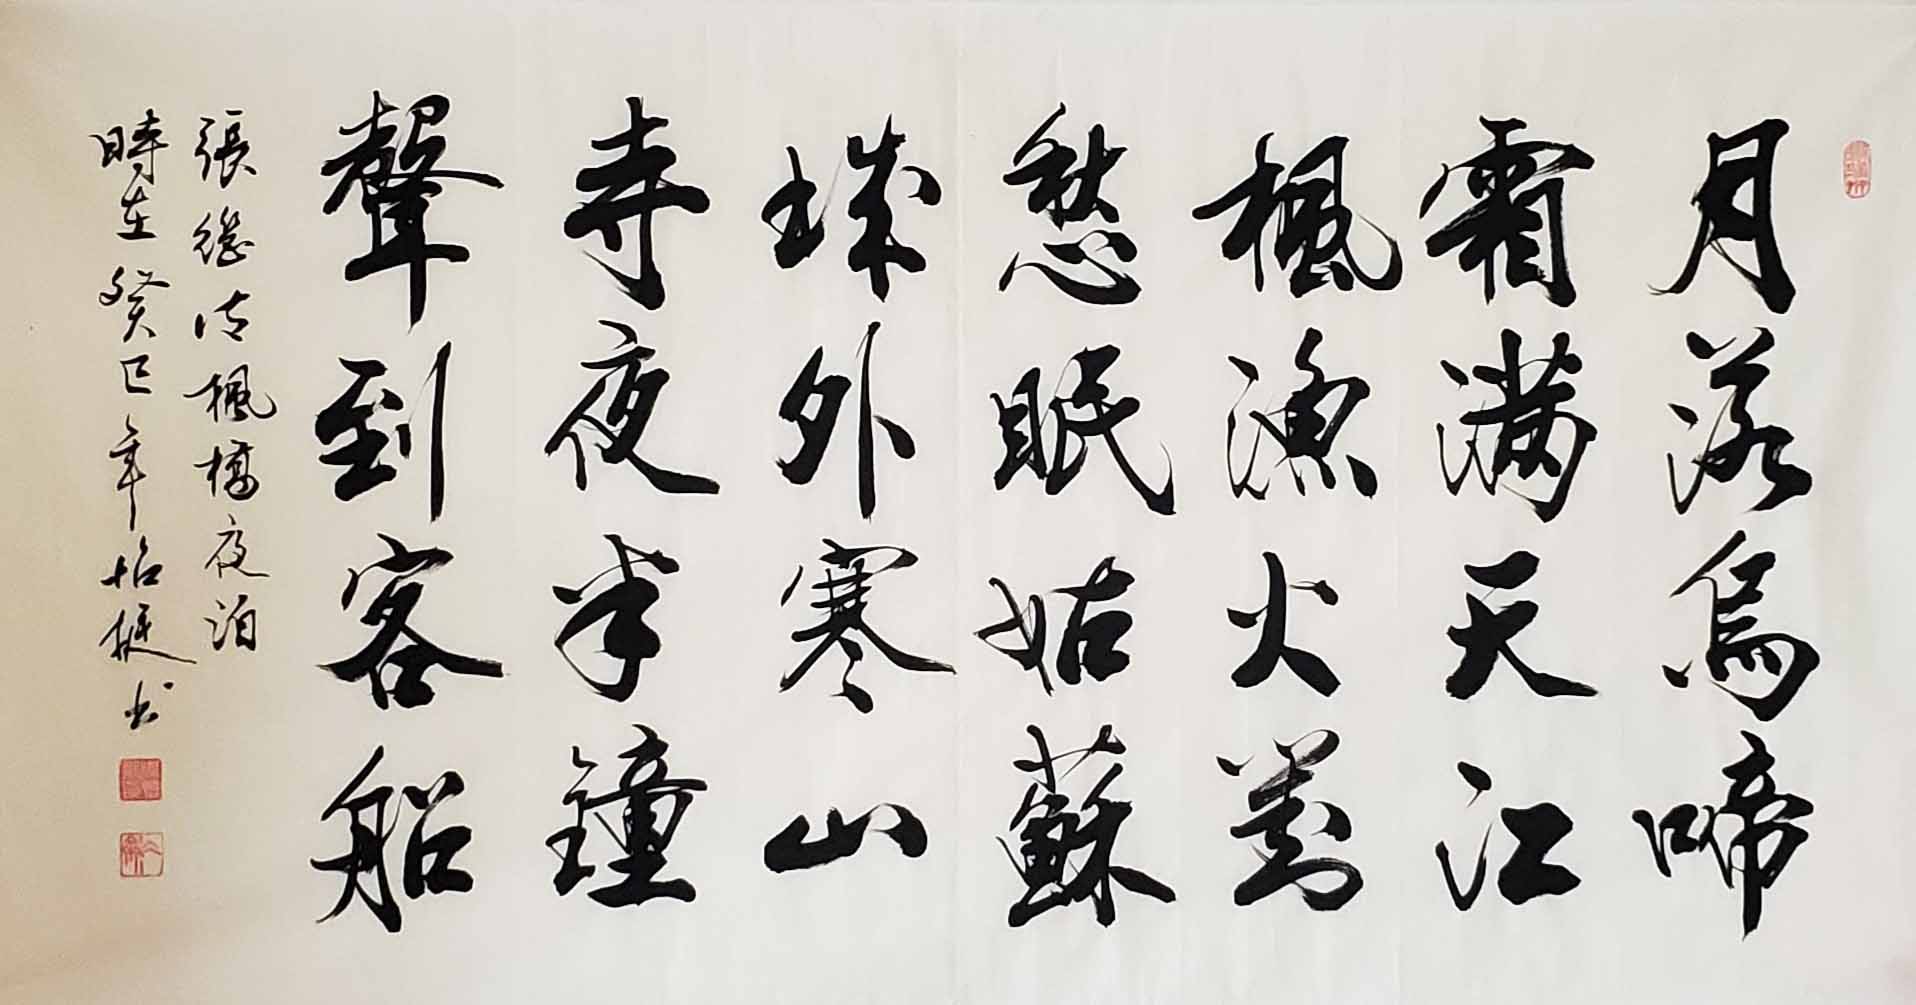 月落烏啼
霜满天江
楓漁火對
愁眠姑蘇
城外寒山
寺夜半鐘
聲到客船
張繼诗楓橋夜泊
時在癸巳年书